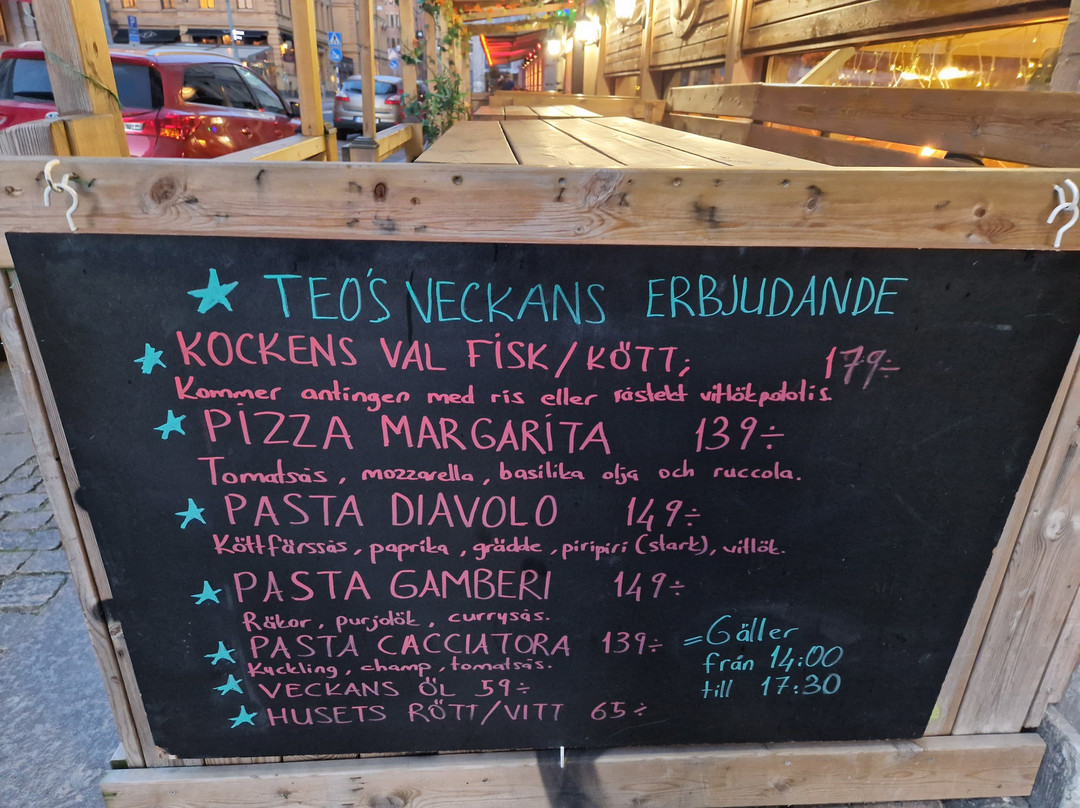 TEO'S VECKANS ERBJUDANDE
KOCKENS VAL FISK/KÖTT; 179:-
Kommer antingen med ris eller råstekt vitlökpotatis.
PIZZA MARGARITA 139:-
Tomatsås, mozzarella, basilika olja och ruccola.
PASTA DIAVOLO 149:-
Köttfärssås, paprika, grädde, piripiri (stark), vitlök.
PASTA GAMBERI 149:-
Räkor, purjolök, currysås.
PASTA CACCIATORA 139:-
Kyckling, champ, tomatsås.
VECKANS ÖL 59:-
HUSETS RÖTT/VITT 65:-
=Gäller
från 14:00
till 17:30